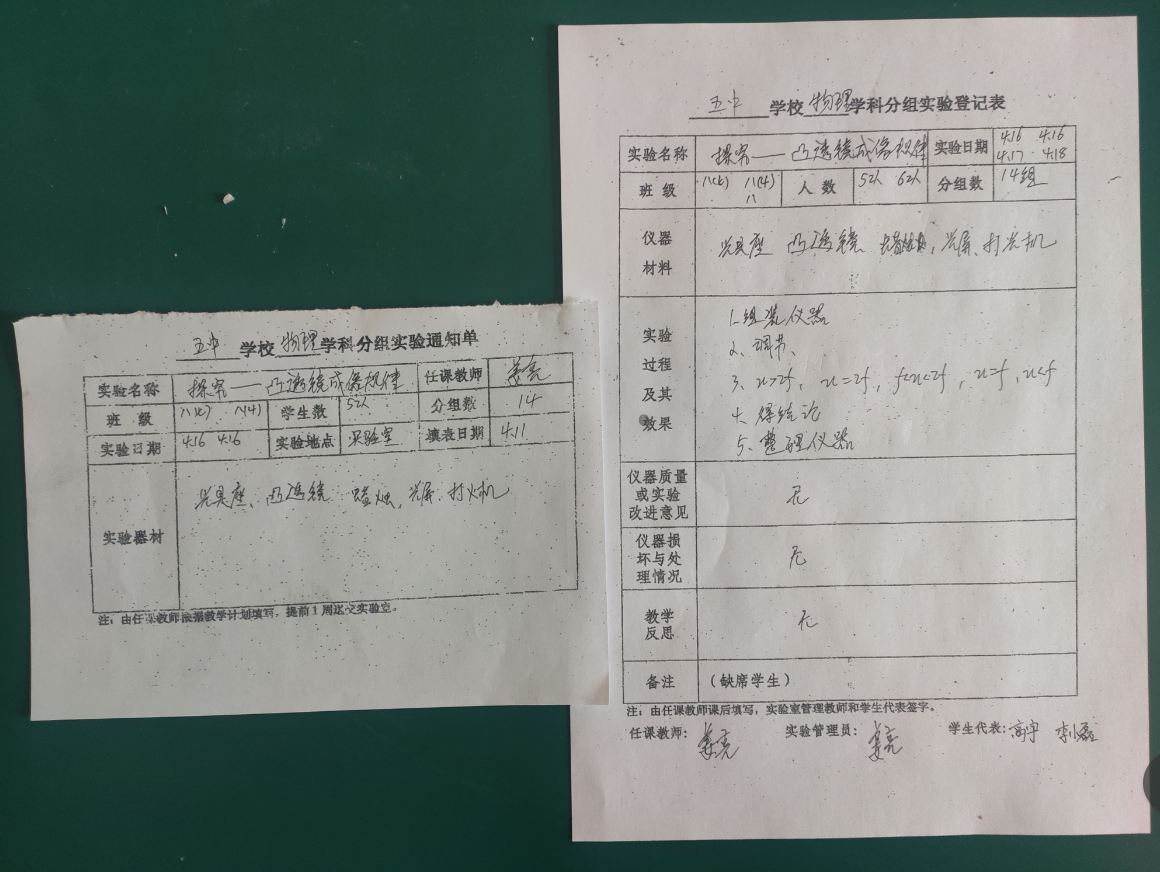 五中 学校 物理 学科分组实验通知单
实验名称 探究——凸透镜成像规律 任课教师 姜亮
班 级 八(七) 八(4) 学生数 52人 分组数 14
实验日期 4.16 4.16 实验地点 实验室 填表日期 4.11
实验器材 光具座、凸透镜 蜡烛、光屏、打火机
注：由任课教师根据教学计划填写，提前1周送交实验室。
五中 学校 物理 学科分组实验登记表
实验名称 探究——凸透镜成像规律 实验日期 4.16 4.16
4.17 4.18
班 级 八(4) 人 数 52人 62人 分组数 14组
八
仪器
材料
光具座 凸透镜 光屏、打火机
实验
过程
及其
效果
1.组装仪器
2、调节、
3、u>2f, u=2f, f<u<2f, u=f, u<f
4、得结论
5、整理仪器
仪器质量
或实验
改进意见
无
仪器损
坏与处
理情况
无
教学
反思
无
备注 （缺席学生）
注：由任课教师课后填写，实验室管理教师和学生代表签字。
任课教师：姜亮 实验管理员：姜亮 学生代表：高宇 李小磊